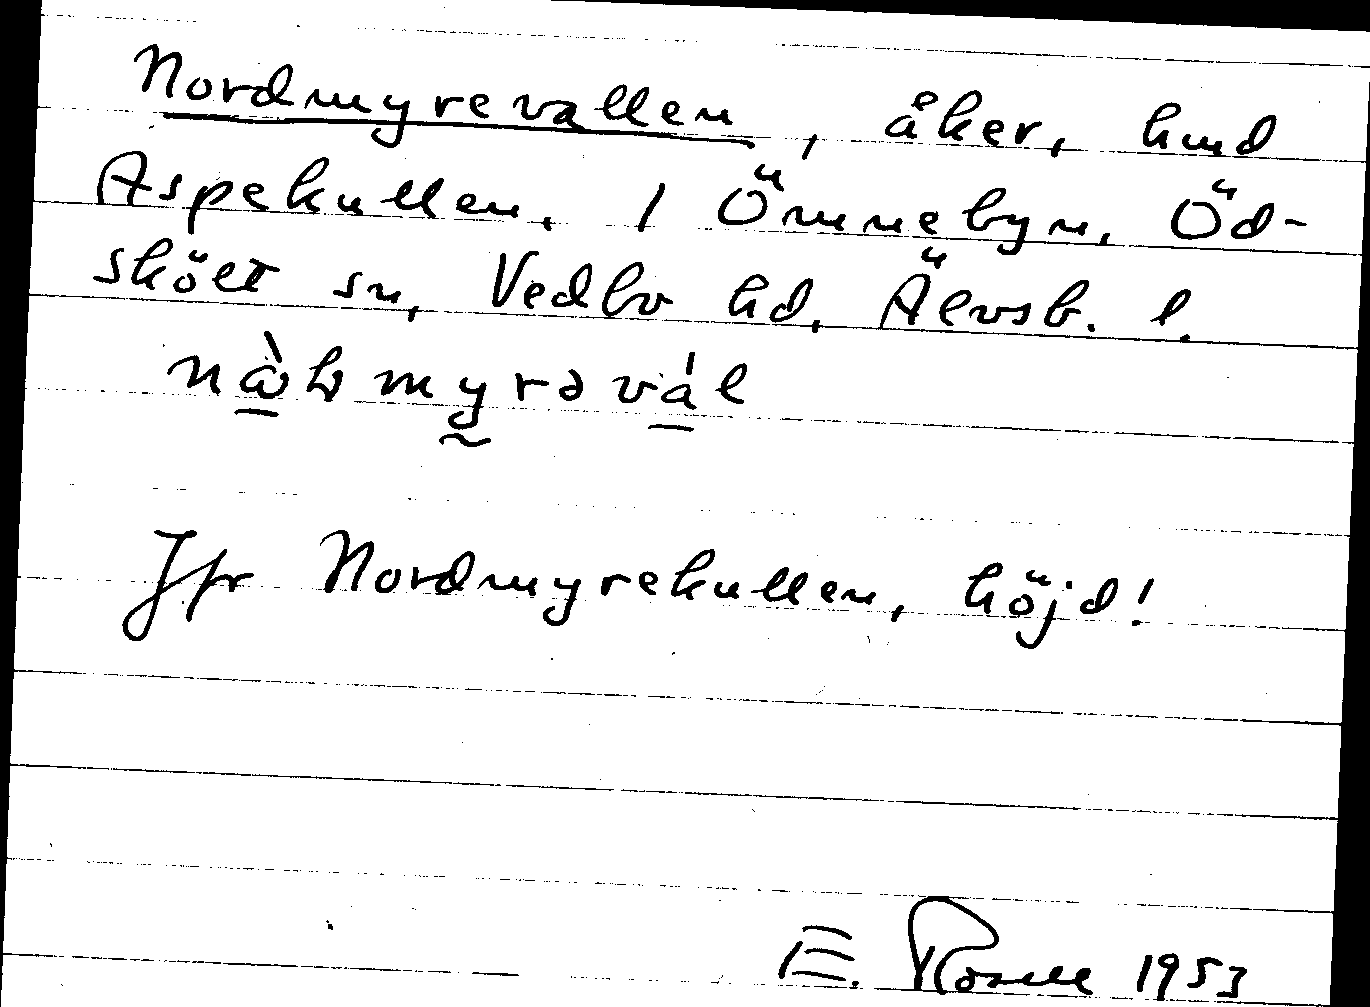 Nordmyrevallen, åker, hmd
Aspekullen, 1 Ömmebyn, Öd-
skölt sn, Vedbo hd, Älvsb. l.
Jfr Nordmyrekullen, höjd!
E. Rosell 1953